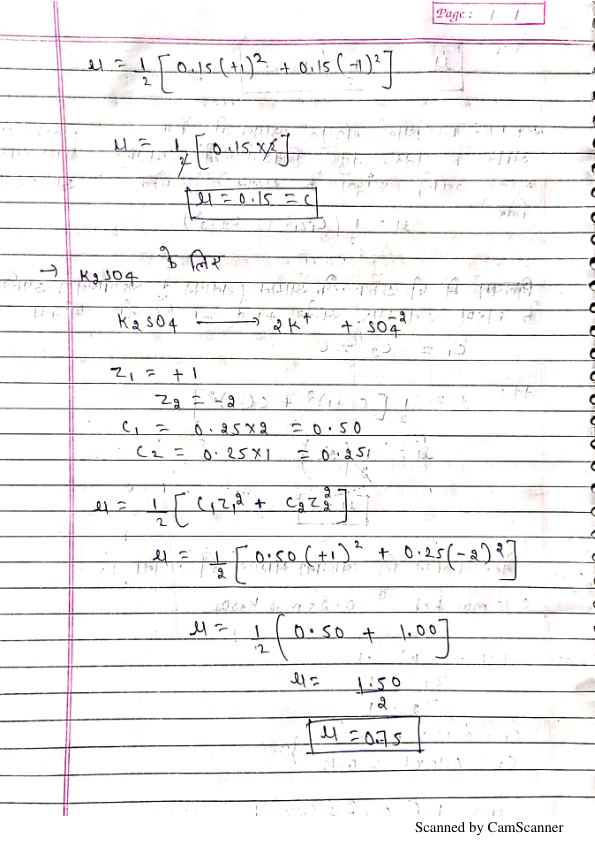 Page : / /
μ = 1/2 [ 0.15 (+1)² + 0.15 (-1)² ]
μ = 1/2 [ 0.15 × 2 ]
μ = 0.15 = C
→ K₂SO₄ के लिए
K₂SO₄ → 2K⁺ + SO₄⁻²
Z₁ = +1
Z₂ = -2
C₁ = 0.25×2 = 0.50
C₂ = 0.25×1 = 0.25
μ = 1/2 [ C₁Z₁² + C₂Z₂² ]
μ = 1/2 [ 0.50 (+1)² + 0.25 (-2)² ]
μ = 1/2 [ 0.50 + 1.00 ]
μ = 1.50/2
μ = 0.75
Scanned by CamScanner